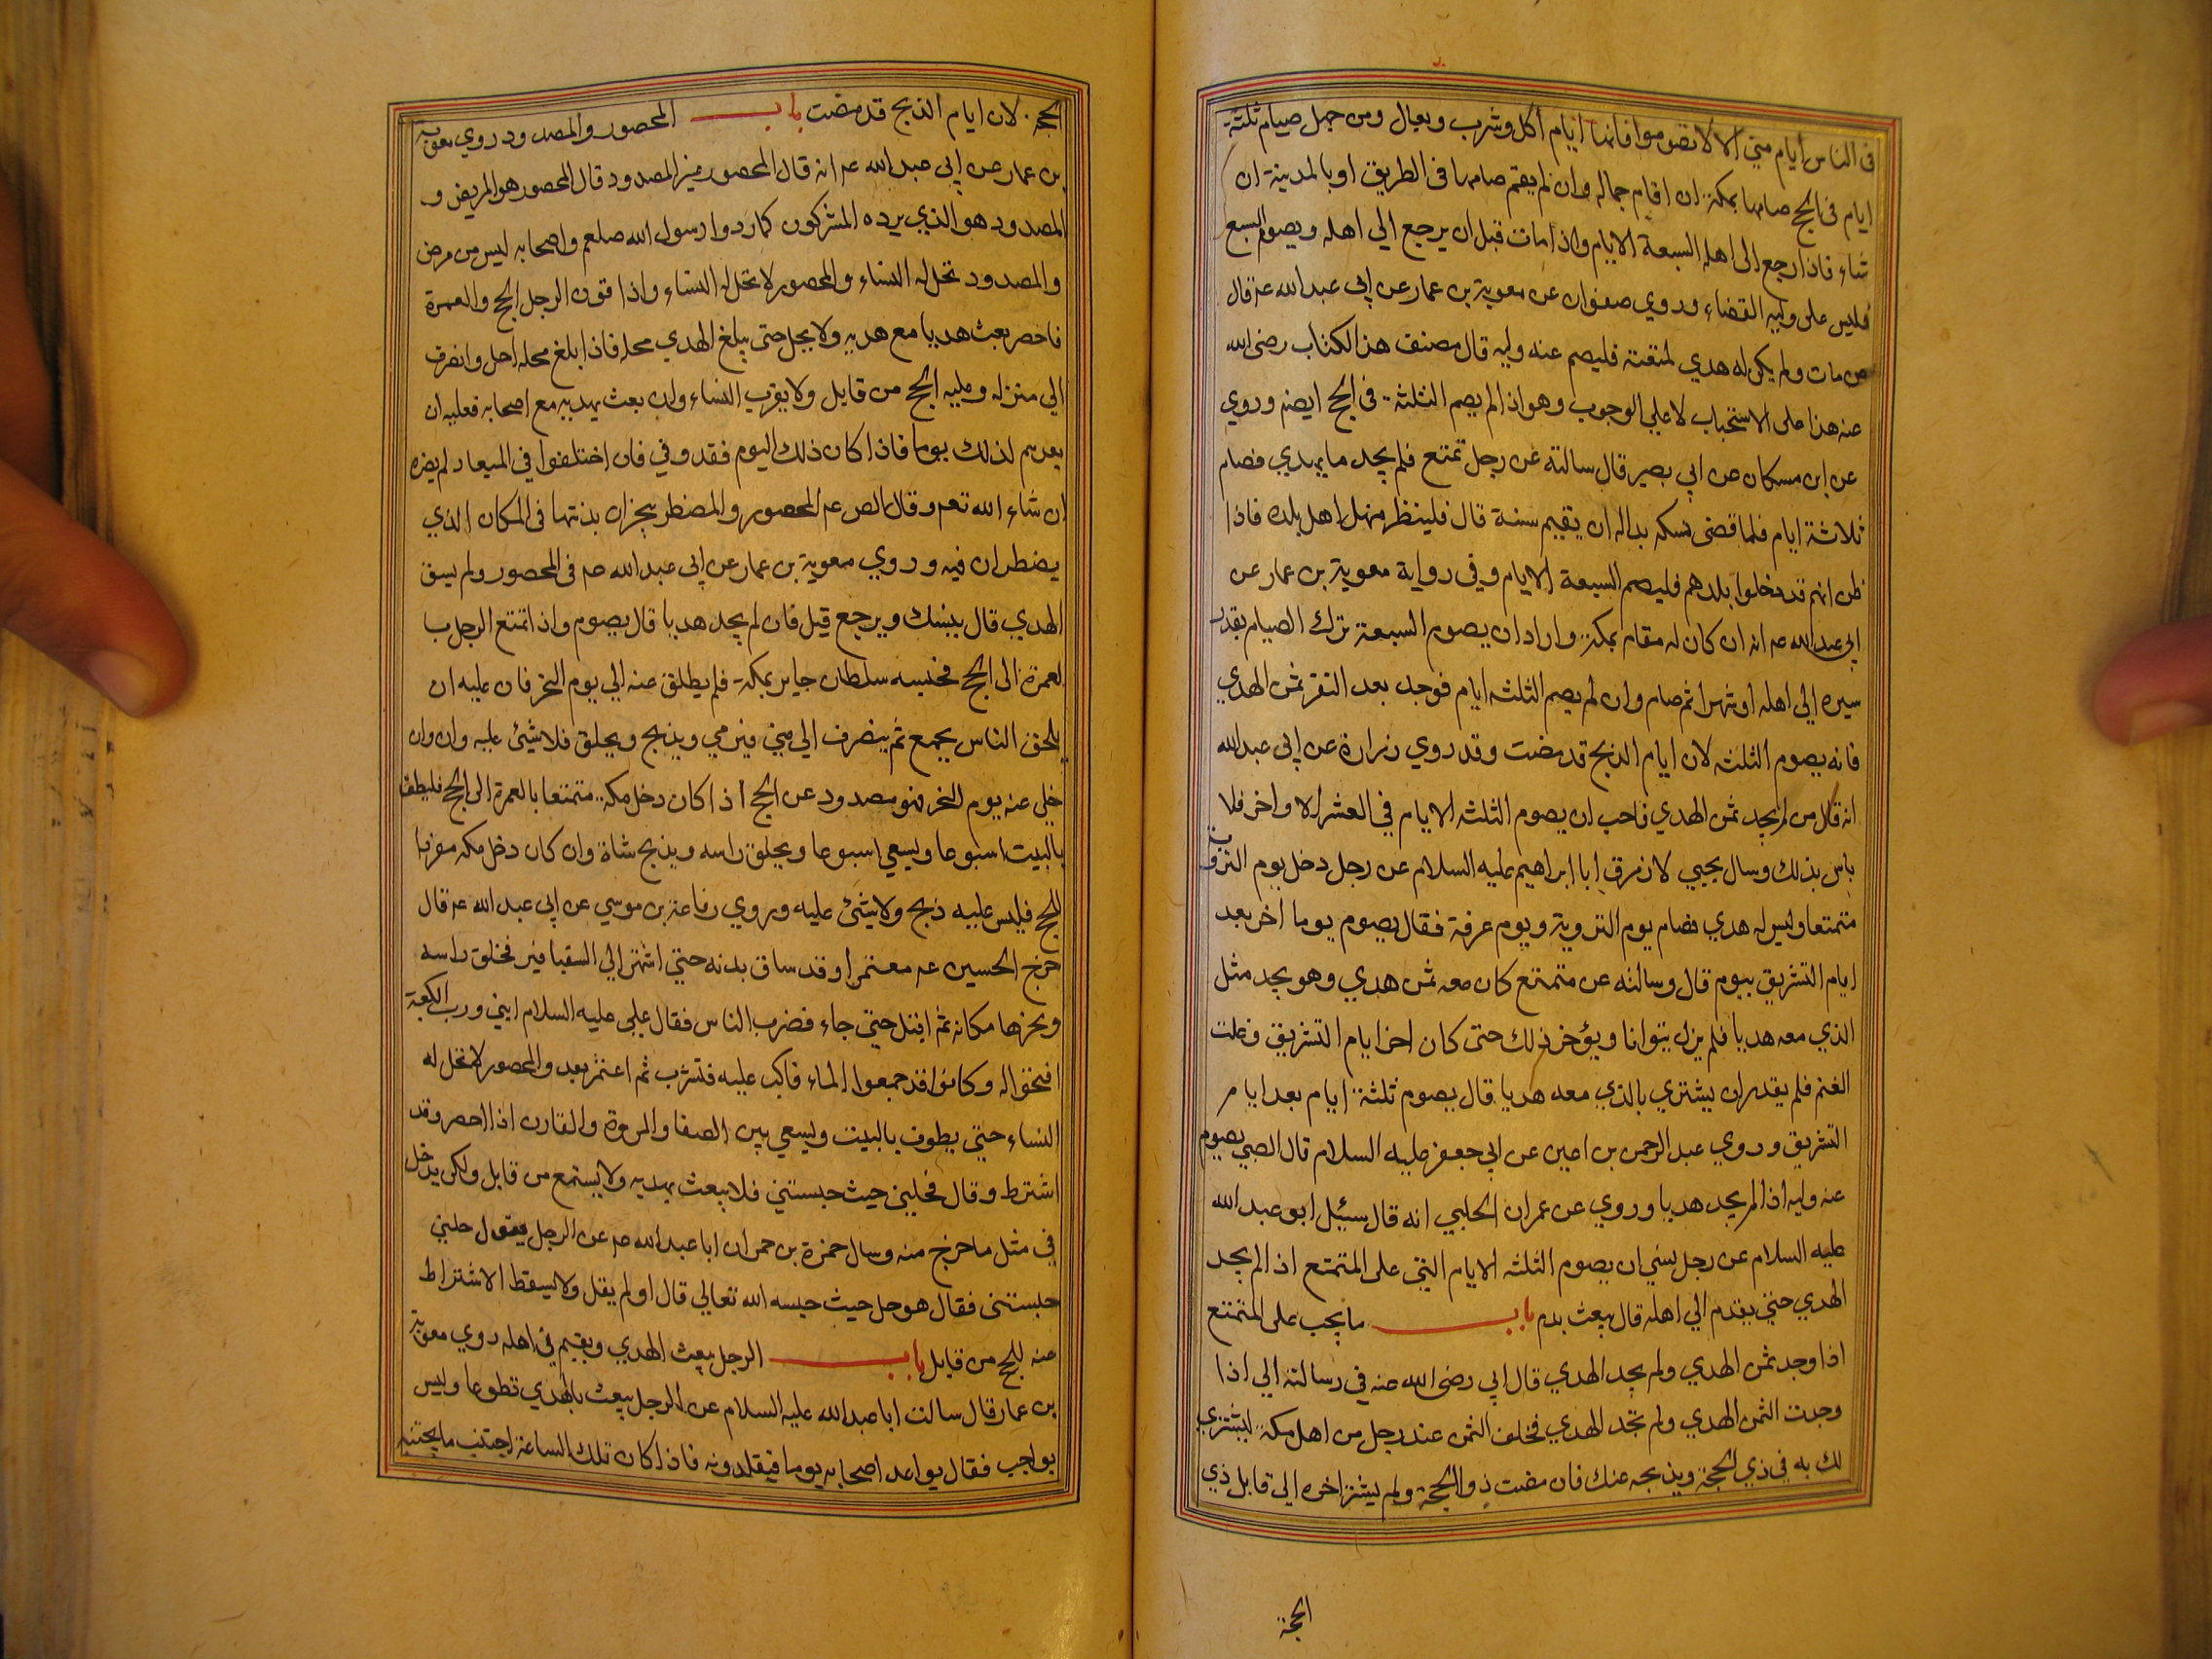 فى الناس ايام منى الا لا تصوموا فانها ايام أكل وشرب وبعال ومن جهل صيام ثلثة
ايام فى الحج صامها بمكة ان اقام جماله وان لم يقم صامها فى الطريق او بالمدينة ان
شاء فاذا رجع الى اهله السبعة الايام واذا مات قبل ان يرجع الي اهله ويصوم السبع
فليس على وليه القضاء وروي صفوان عن معوية بن عمار عن ابي عبد الله ع قال
من مات ولم يكن له هدي لمتعته فليصم عنه وليه قال مصنف هذا الكتاب رضى الله
عنه هذا على الاستحباب لا علي الوجوب وهو اذا لم يصم الثلثة فى الحج ايضا وروي
عن ابن مسكان عن ابي بصير قال سالته عن رجل تمتع فلم يجد ما يهدي فصام
ثلاثة ايام فلما قضى نسكه بدا له ان يقيم سنة قال فلينظر منهل اهل بلده فاذا
ظن انهم قد دخلوا بلدهم فليصم السبعة الايام وفي رواية معوية بن عمار عن
ابي عبد الله ع انه ان كان له مقام بمكة واراد ان يصوم السبعة ترك الصيام بقدر
سيره الي اهله او شهرا ثم صام وان لم يصم الثلثه ايام فوجد بعد النفر ثمن الهدي
فانه يصوم الثلثه لان ايام الذبح قد مضت وقد روي زرارة عن ابي عبد الله
انه قال من لم يجد ثمن الهدي فاحب ان يصوم الثلثه الايام في العشر الاواخر فلا
باس بذلك وسال يحيي الازرق ابا ابراهيم عليه السلام عن رجل دخل يوم التروية
متمتعا وليس له هدي فصام يوم التروية ويوم عرفة فقال يصوم يوما اخر بعد
ايام التشريق بيوم قال وسالته عن متمتع كان معه ثمن هدي وهو يجد مثل
الذي معه هديا فلم يزل يتوانا ويؤخر ذلك حتى كان اخر ايام التشريق وغلت
الغنم فلم يقدر ان يشتري بالذي معه هديا قال يصوم ثلثة ايام بعد ايام
التشريق وروي عبد الرحمن بن اعين عن ابي جعفر عليه السلام قال الصبي يصوم
عنه وليه اذا لم يجد هديا وروي عن عمران الحلبي انه قال سئل ابو عبد الله
عليه السلام عن رجل نسي ان يصوم الثلثه الايام التي على المتمتع اذا لم يجد
الهدي حتي يقدم الي اهله قال يبعث بدم باب ما يجب على المتمتع
اذا وجد ثمن الهدي ولم يجد الهدي قال ابي رضى الله عنه في رسالته الي اذا
وجدت الثمن الهدي ولم تجد الهدي فخلف الثمن عند رجل من اهل مكة ليشتري
لك به في ذي الحجة ويذبحه عنك فان مضت ذو الحجة ولم يشتر اخره الي قابل ذي
الحجة
الحجة لان ايام الذبح قد مضت باب المحصور والمصدود روي معوية
بن عمار عن ابي عبد الله ع انه قال المحصور غير المصدود قال المحصور هو المريض و
المصدود هو الذي يرده المشركون كما ردوا رسول الله صلعم واصحابه ليس من مرض
والمصدود تحل له النساء والمحصور لا تحل له النساء واذا قرن الرجل الحج والعمرة
فاحصر بعث هديا مع هديه ولا يحل حتى يبلغ الهدي محله فاذا بلغ محله احل وانصرف
الي منزله وعليه الحج من قابل ولا يقرب النساء وان بعث بهديه مع اصحابه فعليه ان
يعدهم لذلك يوما فاذا كان ذلك اليوم فقد وفي فان اختلفوا في الميعاد لم يضره
ان شاء الله تعم وقال الص ع المحصور والمضطر ينحران بدنتهما فى المكان الذي
يضطران فيه وروي معوية بن عمار عن ابي عبد الله ع فى المحصور ولم يسق
الهدي قال ينسك ويرجع قيل فان لم يجد هديا قال يصوم واذا تمتع الرجل با
لعمرة الى الحج فحبسه سلطان جاير بمكة فلم يطلق عنه الي يوم النحر فان عليه ان
يلحق الناس بجمع ثم ينصرف الي منى فيرمي ويذبح ويحلق فلا شئ عليه وان وان
خلى عنه يوم النحر فهو مصدود عن الحج اذا كان دخل مكة متمتعا بالعمرة الى الحج فليطف
بالبيت اسبوعا وليسعي اسبوعا ويحلق راسه ويذبح شاة وان كان دخل مكه مفردا
للحج فليس عليه ذبح ولا شئ عليه وروي رفاعة بن موسي عن ابي عبد الله ع قال
خرج الحسين ع معتمرا وقد ساق بدنه حتي انتهى الي السقيا فبر فحلق راسه
ونحرها مكانه ثم اقبل حتي جاء فضرب الناس فقال علي عليه السلام ابني ورب الكعبة
افتحوا له وكانوا قد جمعوا الماء فاكب عليه فشرب ثم اعتمر بعد والمحصور لا تحل له
النساء حتي يطوف بالبيت وليسعي بين الصفا والمروة والقارن اذا احصر وقد
اشترط وقال فحلني حيث حبستني فلا يبعث بهديه ولا يستمع من قابل ولكن يدخل
في مثل ما خرج منه وسال حمزة بن حمران ابا عبد الله ع عن الرجل يقول حلني
حبستني فقال هو حل حيث حبسه الله تعالي قال او لم يقل ولا يسقط الاشتراط
عنه للحج من قابل باب الرجل يبعث الهدي ويقيم في اهله روي معوية
بن عمار قال سالت ابا عبد الله عليه السلام عن الرجل يبعث بالهدي تطوعا وليس
بواجب فقال يواعد اصحابه يوما فيقلدونه فاذا كان تلك الساعة اجتنب ما يجتنبه